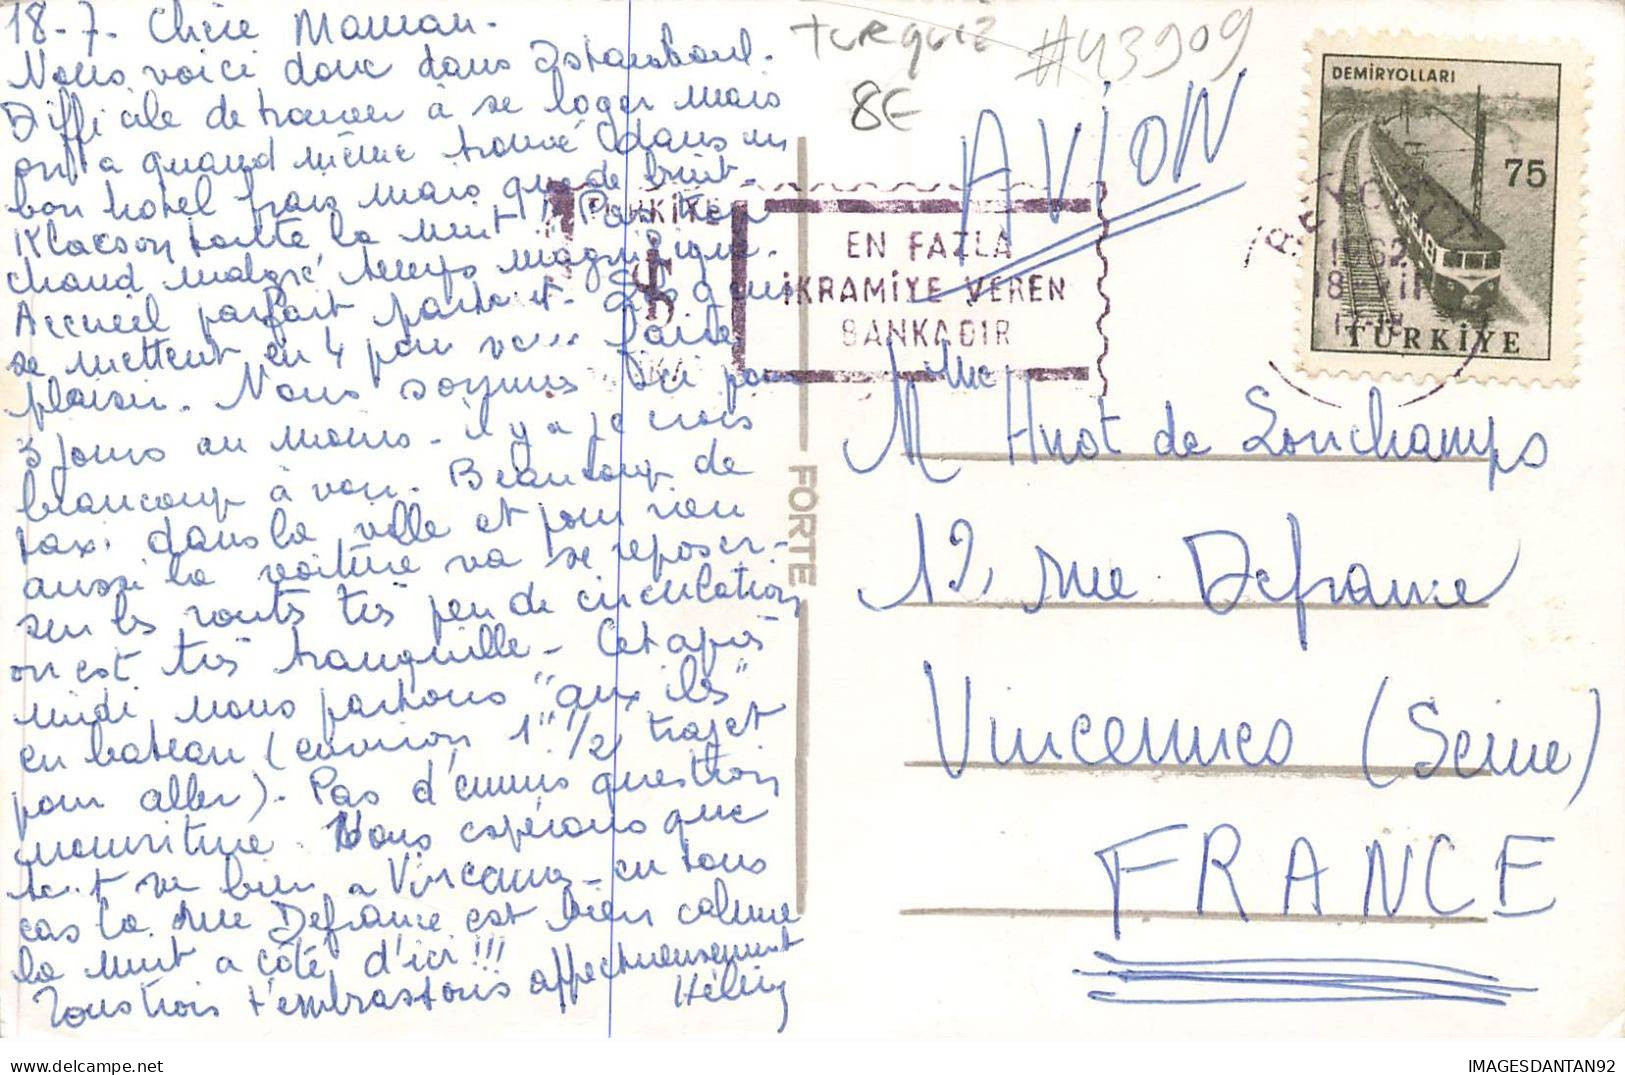 18-7- Chère Maman.
Nous voici donc dans Istamboul.
Difficile de trouver à se loger mais
on a quand même trouvé dans un
bon hotel frais mais que de bruit.
Klacson toute la nuit! Pas trop
chaud malgré temps magnifique.
Accueil parfait partout. Les gens
se mettent en 4 pour vs... faire
plaisir. Nous soymes ici pour
3 jours au moins - il y a je crois
beaucoup à voir. Beaucoup de
taxi dans la ville et pour rien
aussi la voiture va se reposer -
sur les routes très peu de circulation
on est très tranquille - Cet après
midi nous partons "aux iles"
en bateau (environ 1H 1/2 trajet
pour aller). Pas d'ennuis question
nourriture. Nous espérons que
tout va bien à Vincennes - en tous
cas la rue Defrance est bien calme
la nuit a côté d'ici!!!
Tous trois t'embrassons affectueusement
turquie #43909
8E
AVION
TÜRKİYE
EN FAZLA
İKRAMİYE VEREN
BANKADIR
DEMİRYOLLARI
75
TÜRKİYE
BEYOĞLU
1962
18 VII
17-18
FORTE
Mme Huot de Lonchamps
12, rue Defrance
Vincennes (Seine)
FRANCE
IMAGESDANTAN92